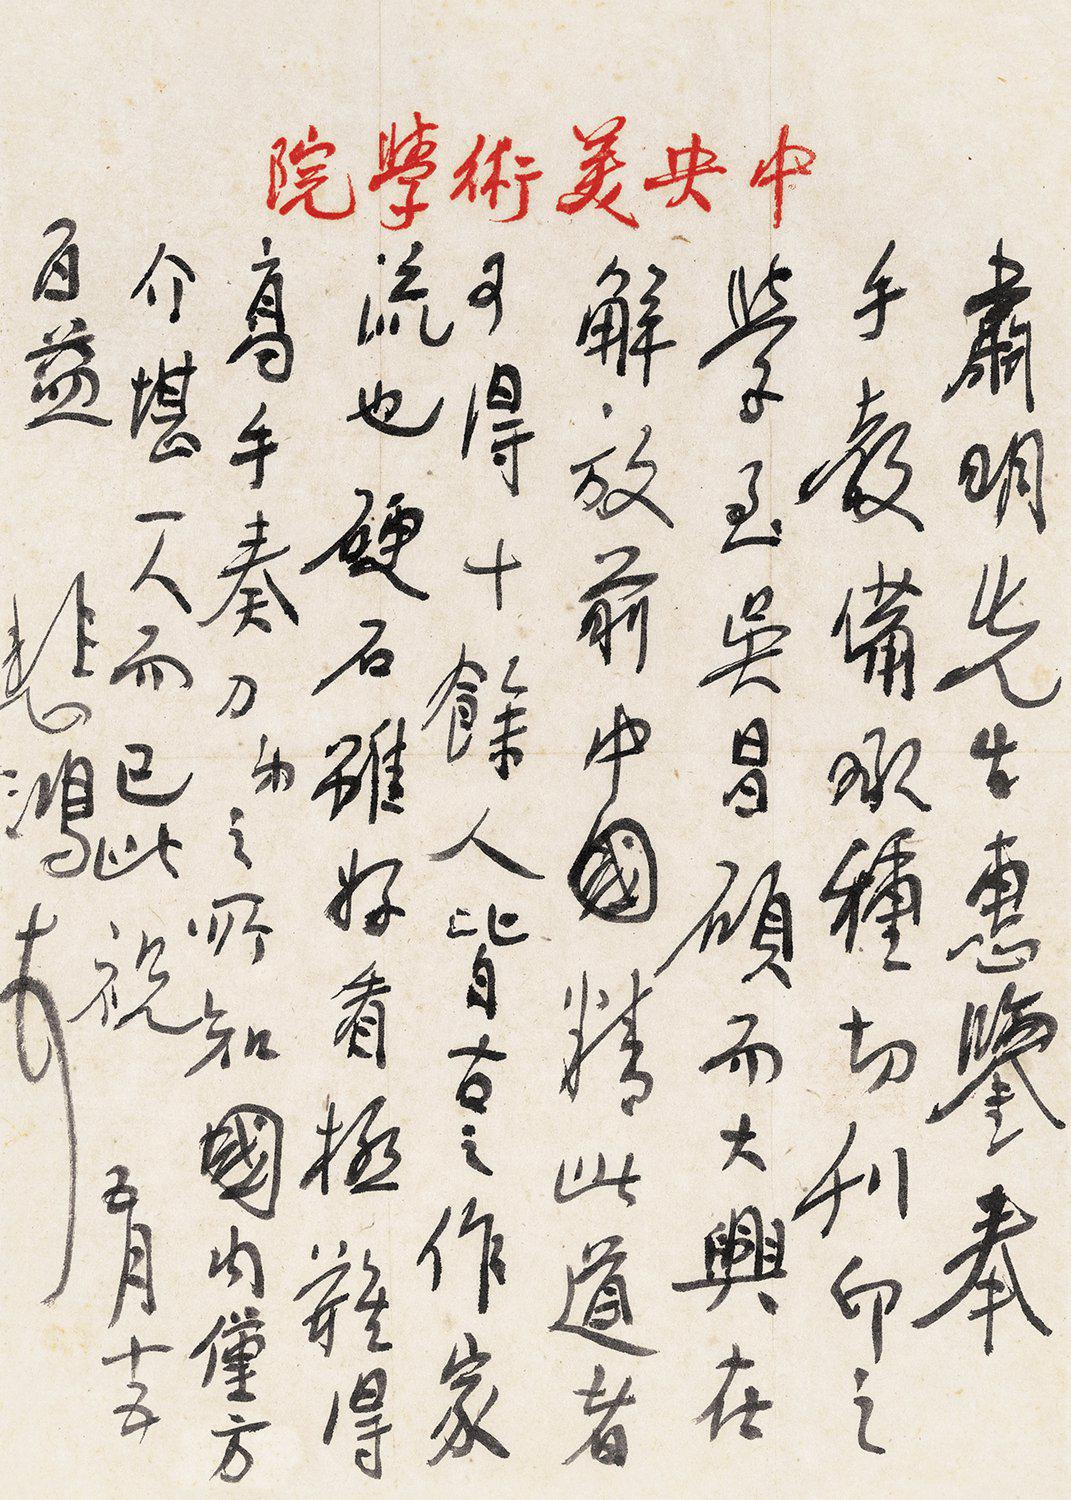 中央美術學院
肅明先生惠鑒奉
手教備承種切刊印之
學至吳昌碩而大興在
解放前中國精此道者
可得十餘人皆古之作家
流也硬石雖好看極難得
高手奏刀弟之所知國內僅方
介堪一人而已此祝
百益
悲鴻
五月十五